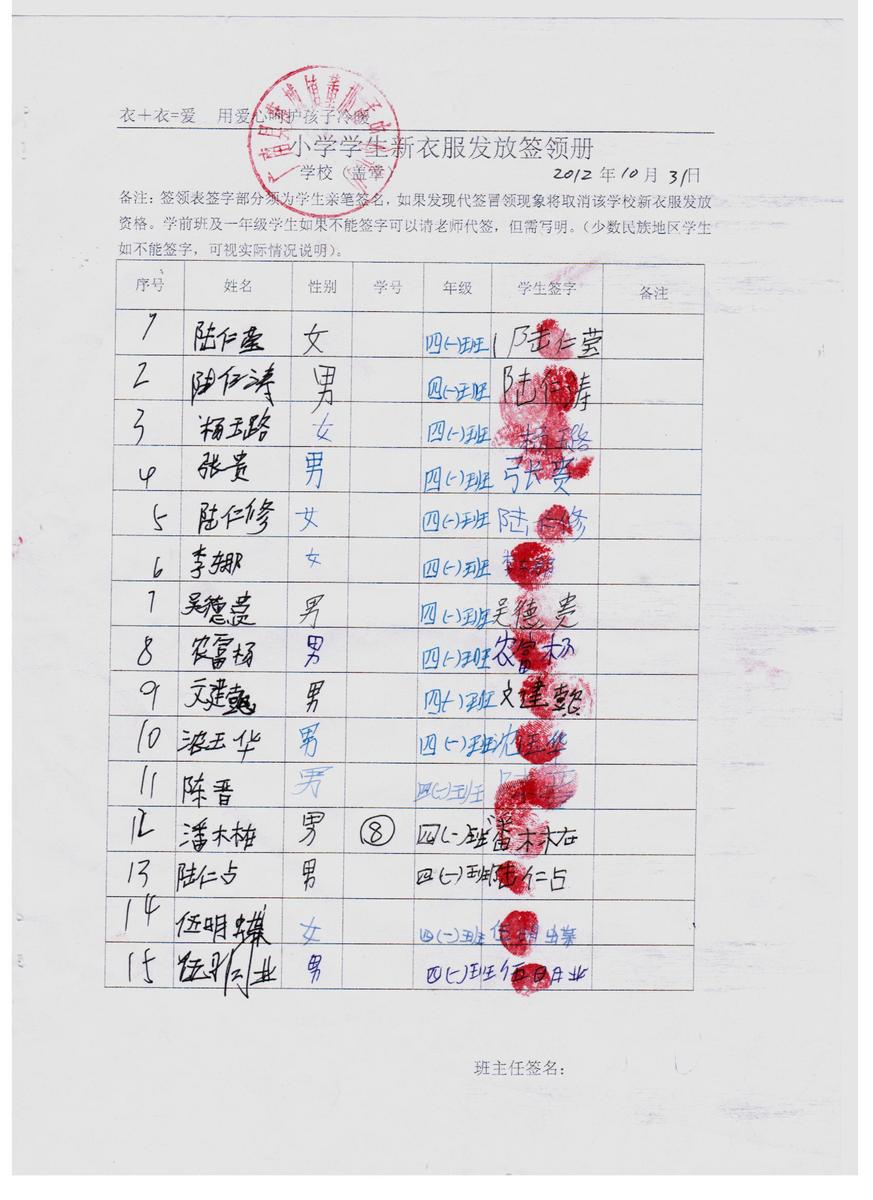 衣+衣=爱 用爱心呵护孩子冷暖
小学学生新衣服发放签领册
学校(盖章) 2012年10月31日
备注:签领表签字部分须为学生亲笔签名,如果发现代签冒领现象将取消该学校新衣服发放
资格。学前班及一年级学生如果不能签字可以请老师代签,但需写明。(少数民族地区学生
如不能签字,可视实际情况说明)。
序号 姓名 性别 学号 年级 学生签字 备注
1 陆仁莹 女 四(一)班 陆仁莹
2 陆仁涛 男 四(一)班 陆仁涛
3 杨玉路 女 四(一)班 杨玉路
4 张贵 男 四(一)班 张贵
5 陆仁修 女 四(一)班 陆仁修
6 李娜 女 四(一)班 李娜
7 吴德贵 男 四(一)班 吴德贵
8 农富杨 男 四(一)班 农富杨
9 文建懿 男 四(一)班 文建懿
10 玉华 男 四(一)班 沈玉华
11 陈晋 男 四(一)班
12 潘木栋 男 ⑧ 四(一)班 潘木
13 陆仁占 男 四(一)班 陆仁占
14 伍明蝶 女 四(一)班 伍明蝶
15 伍 业 男 四(一)班 伍 业
班主任签名: